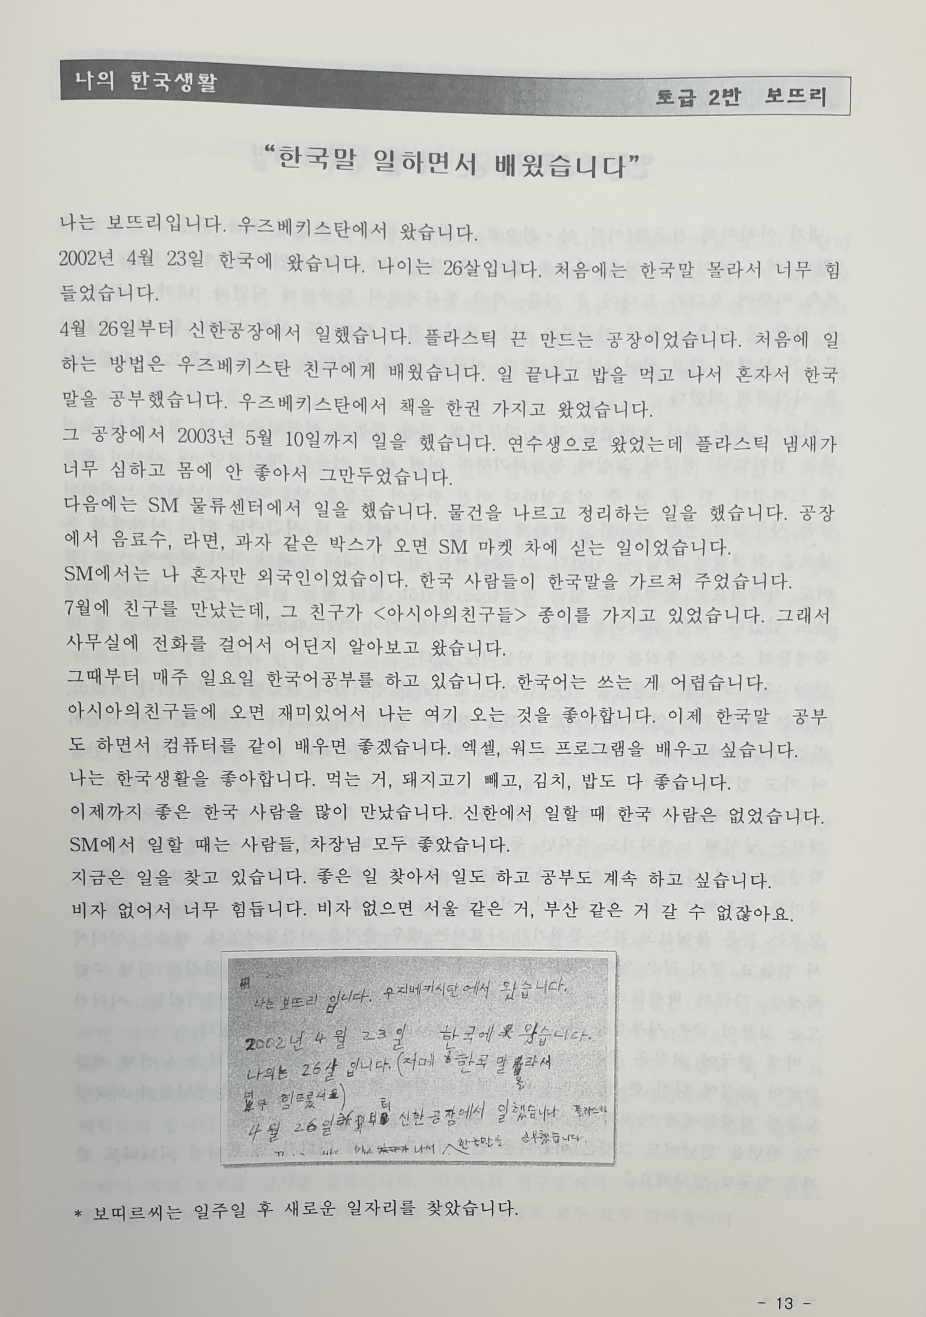 나의 한국생활
초급 2반 보뜨리
“한국말 일하면서 배웠습니다”
나는 보뜨리입니다. 우즈베키스탄에서 왔습니다.
2002년 4월 23일 한국에 왔습니다. 나이는 26살입니다. 처음에는 한국말 몰라서 너무 힘
들었습니다.
4월 26일부터 신한공장에서 일했습니다. 플라스틱 끈 만드는 공장이었습니다. 처음에 일
하는 방법은 우즈베키스탄 친구에게 배웠습니다. 일 끝나고 밥을 먹고 나서 혼자서 한국
말을 공부했습니다. 우즈베키스탄에서 책을 한권 가지고 왔었습니다.
그 공장에서 2003년 5월 10일까지 일을 했습니다. 연수생으로 왔었는데 플라스틱 냄새가
너무 심하고 몸에 안 좋아서 그만두었습니다.
다음에는 SM 물류센터에서 일을 했습니다. 물건을 나르고 정리하는 일을 했습니다. 공장
에서 음료수, 라면, 과자 같은 박스가 오면 SM 마켓 차에 싣는 일이었습니다.
SM에서는 나 혼자만 외국인이었습이다. 한국 사람들이 한국말을 가르쳐 주었습니다.
7월에 친구를 만났는데, 그 친구가 <아시아의친구들> 종이를 가지고 있었습니다. 그래서
사무실에 전화를 걸어서 어딘지 알아보고 왔습니다.
그때부터 매주 일요일 한국어공부를 하고 있습니다. 한국어는 쓰는 게 어렵습니다.
아시아의친구들에 오면 재미있어서 나는 여기 오는 것을 좋아합니다. 이제 한국말 공부
도 하면서 컴퓨터를 같이 배우면 좋겠습니다. 엑셀, 워드 프로그램을 배우고 싶습니다.
나는 한국생활을 좋아합니다. 먹는 거, 돼지고기 빼고, 김치, 밥도 다 좋습니다.
이제까지 좋은 한국 사람을 많이 만났습니다. 신한에서 일할 때 한국 사람은 없었습니다.
SM에서 일할 때는 사람들, 차장님 모두 좋았습니다.
지금은 일을 찾고 있습니다. 좋은 일 찾아서 일도 하고 공부도 계속 하고 싶습니다.
비자 없어서 너무 힘듭니다. 비자 없으면 서울 같은 거, 부산 같은 거 갈 수 없잖아요.
나는 보뜨리 입니다. 우지베키시탄에서 왔습니다.
2002년 4월 23일 한국에 왔습니다.
나의는 26살 입니다. 한국 말
4월 26일 신한공장에서 일했습니다 플라스틱
나서 한국말을 공부했습니다.
* 보띠르씨는 일주일 후 새로운 일자리를 찾았습니다.
- 13 -